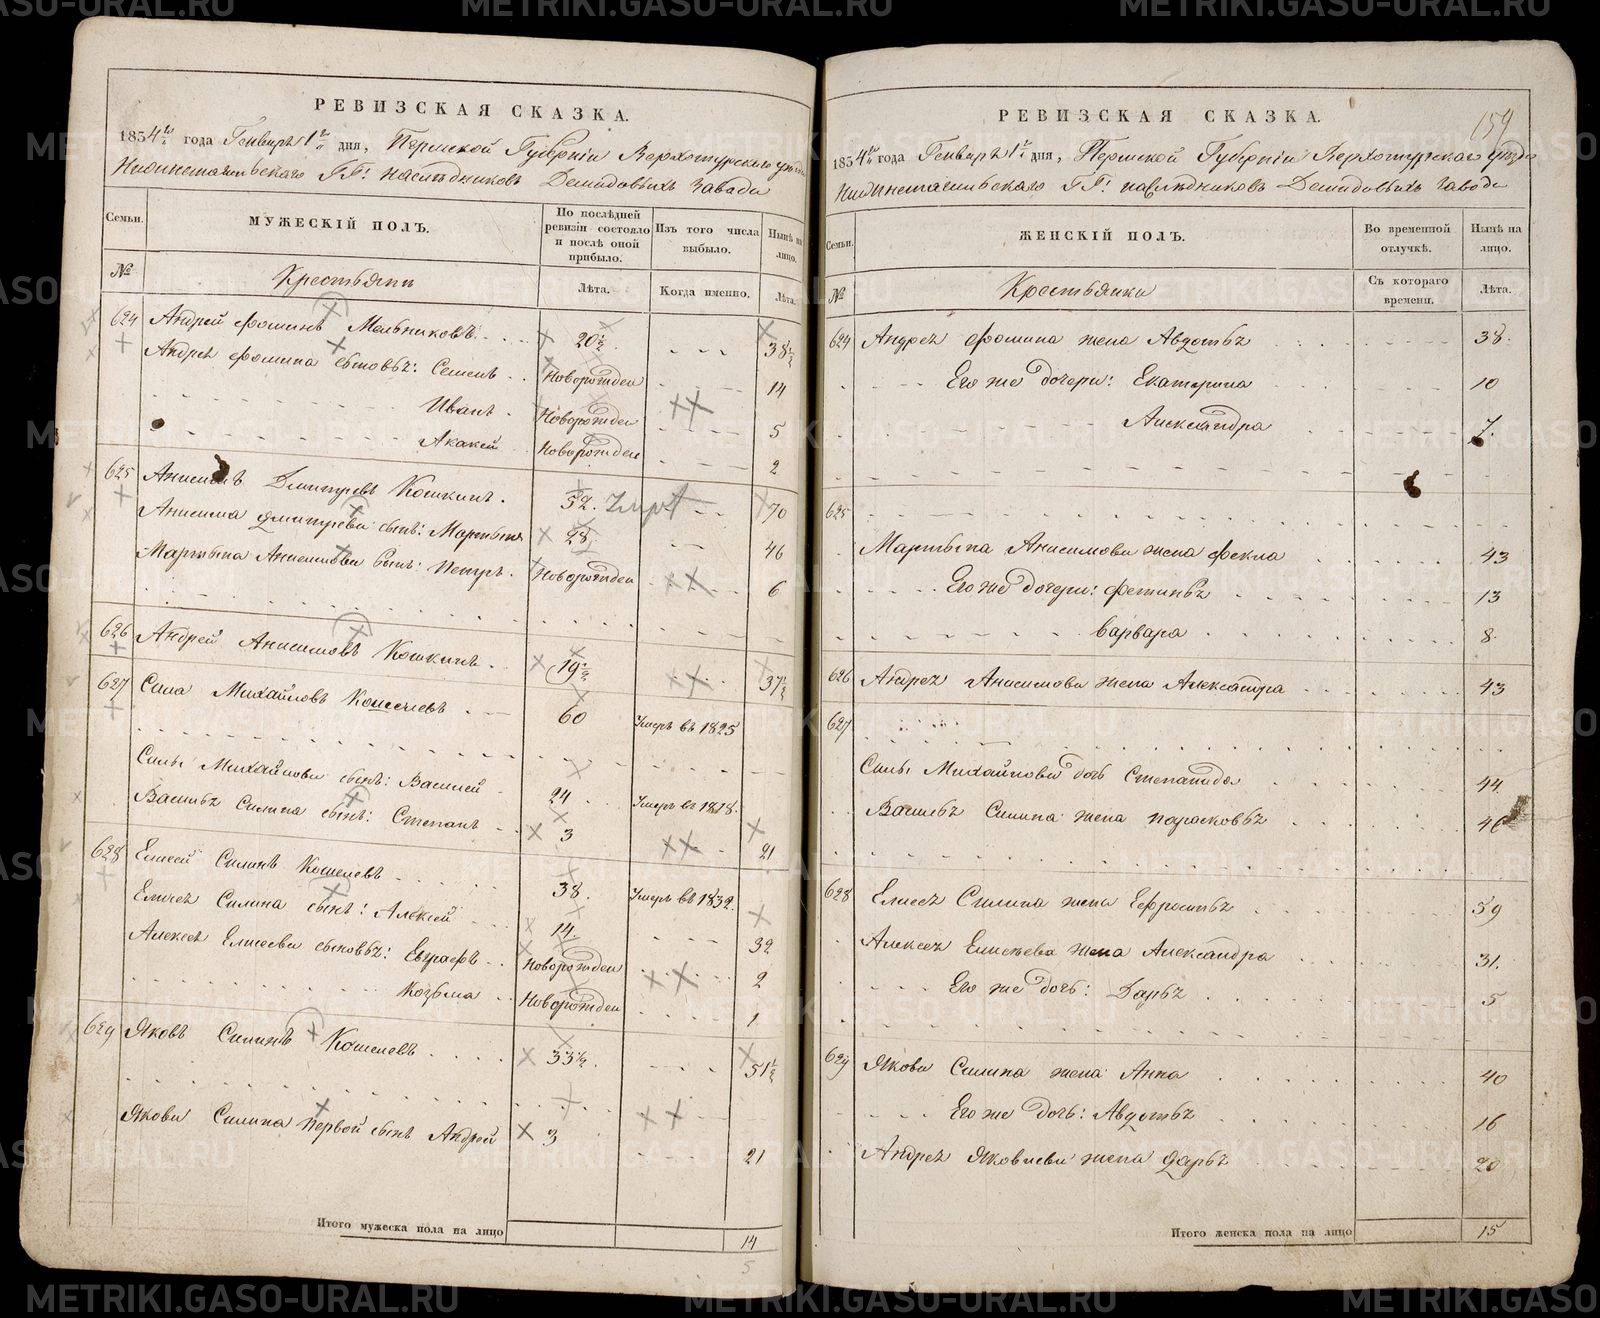 РЕВИЗСКАЯ СКАЗКА.
1854 го года Генваря 1 го дня, Пермской Губернiи Верхотурскаго уѣзда
Нижнетагильскаго ГГ: наслѣдниковъ Демидовыхъ Завода
Семьи.
МУЖЕСКIЙ ПОЛЪ.
По послѣдней ревизiи состояло и послѣ оной прибыло.
Изъ того числа выбыло.
Нынѣ на лицо.
№
Крестьяни
Лѣта.
Когда именно.
Лѣта.
624 Андрей Фоминъ Мельниковъ 20½ 38½
Андрея Фомина сыновья: Семенъ Новорожден 14
Иванъ Новорожден 5
Акакей Новорожден 2
625 Анисимъ Дмитрiевъ Кошкинъ. 52. 70
Анисима Дмитрiева сынъ: Мартынъ 28 46
Мартына Анисимова сынъ: Петръ. Новорожден 6
626 Андрей Анисимовъ Кошкинъ. 19½ 37½
627 Сила Михайловъ Кошелевъ 60 Умеръ въ 1825
Силы Михайлова сынъ: Василей 24 Умеръ въ 1818.
Василья Силина сынъ: Степанъ 3 21
628 Елисей Силинъ Кошелевъ 38. Умеръ въ 1832.
Елисея Силина сынъ: Алексей 14. 32
Алексея Елисеева сыновья: Евграфъ Новорожден 2
Козьма Новорожден 1
629 Яковъ Силинъ Кошелевъ 33½. 51½
Якова Силина первой сынъ Андрей 3 21
Итого мужеска пола на лицо 14
5
159
РЕВИЗСКАЯ СКАЗКА.
1854 го года Генваря 1 го дня, Пермской Губернiи Верхотурскаго уѣзда
Нижнетагильскаго ГГ: наслѣдниковъ Демидовыхъ завода
Семьи.
ЖЕНСКIЙ ПОЛЪ.
Во временной отлучкѣ.
Нынѣ на лицо.
№
Крестьянки
Съ котораго времени.
Лѣта.
624 Андрея Фомина жена Авдотья 38.
Его же дочери: Екатерина 10
Александра 7.
625
Мартына Анисимова жена Фекла 43
Его же дочери: Фетинья 13
Варвара 8.
626 Андрея Анисимова жена Александра 43
627
Силы Михайлова дочь Степанида 44
Василья Силина жена Парасковья 46
628 Елисея Силина жена Ефросинья 59
Алексея Елисѣева жена Александра 31.
Его же дочь: Дарья 5
629 Якова Силина жена Анна 40
Его же дочь: Авдотья 16
Андрея Яковлева жена Дарья 20
Итого женска пола на лицо 15
METRIKI.GASO-URAL.RU